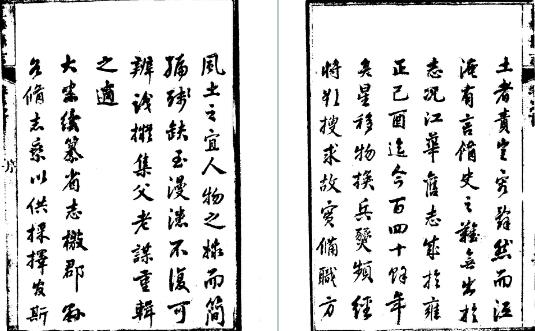 土者責豈容辭然而江
淹有言脩史之難無出於
志况江華舊志成於雍
正己酉迄今百四十餘年
矣星移物換兵燹頻經
將欲搜求故實備職方
風土之宜人物之而簡
編殘缺漫漶不復可
辨識擬集父老謀重輯
之適
大憲續纂省志檄郡縣
各脩志乘以供採擇爰斯